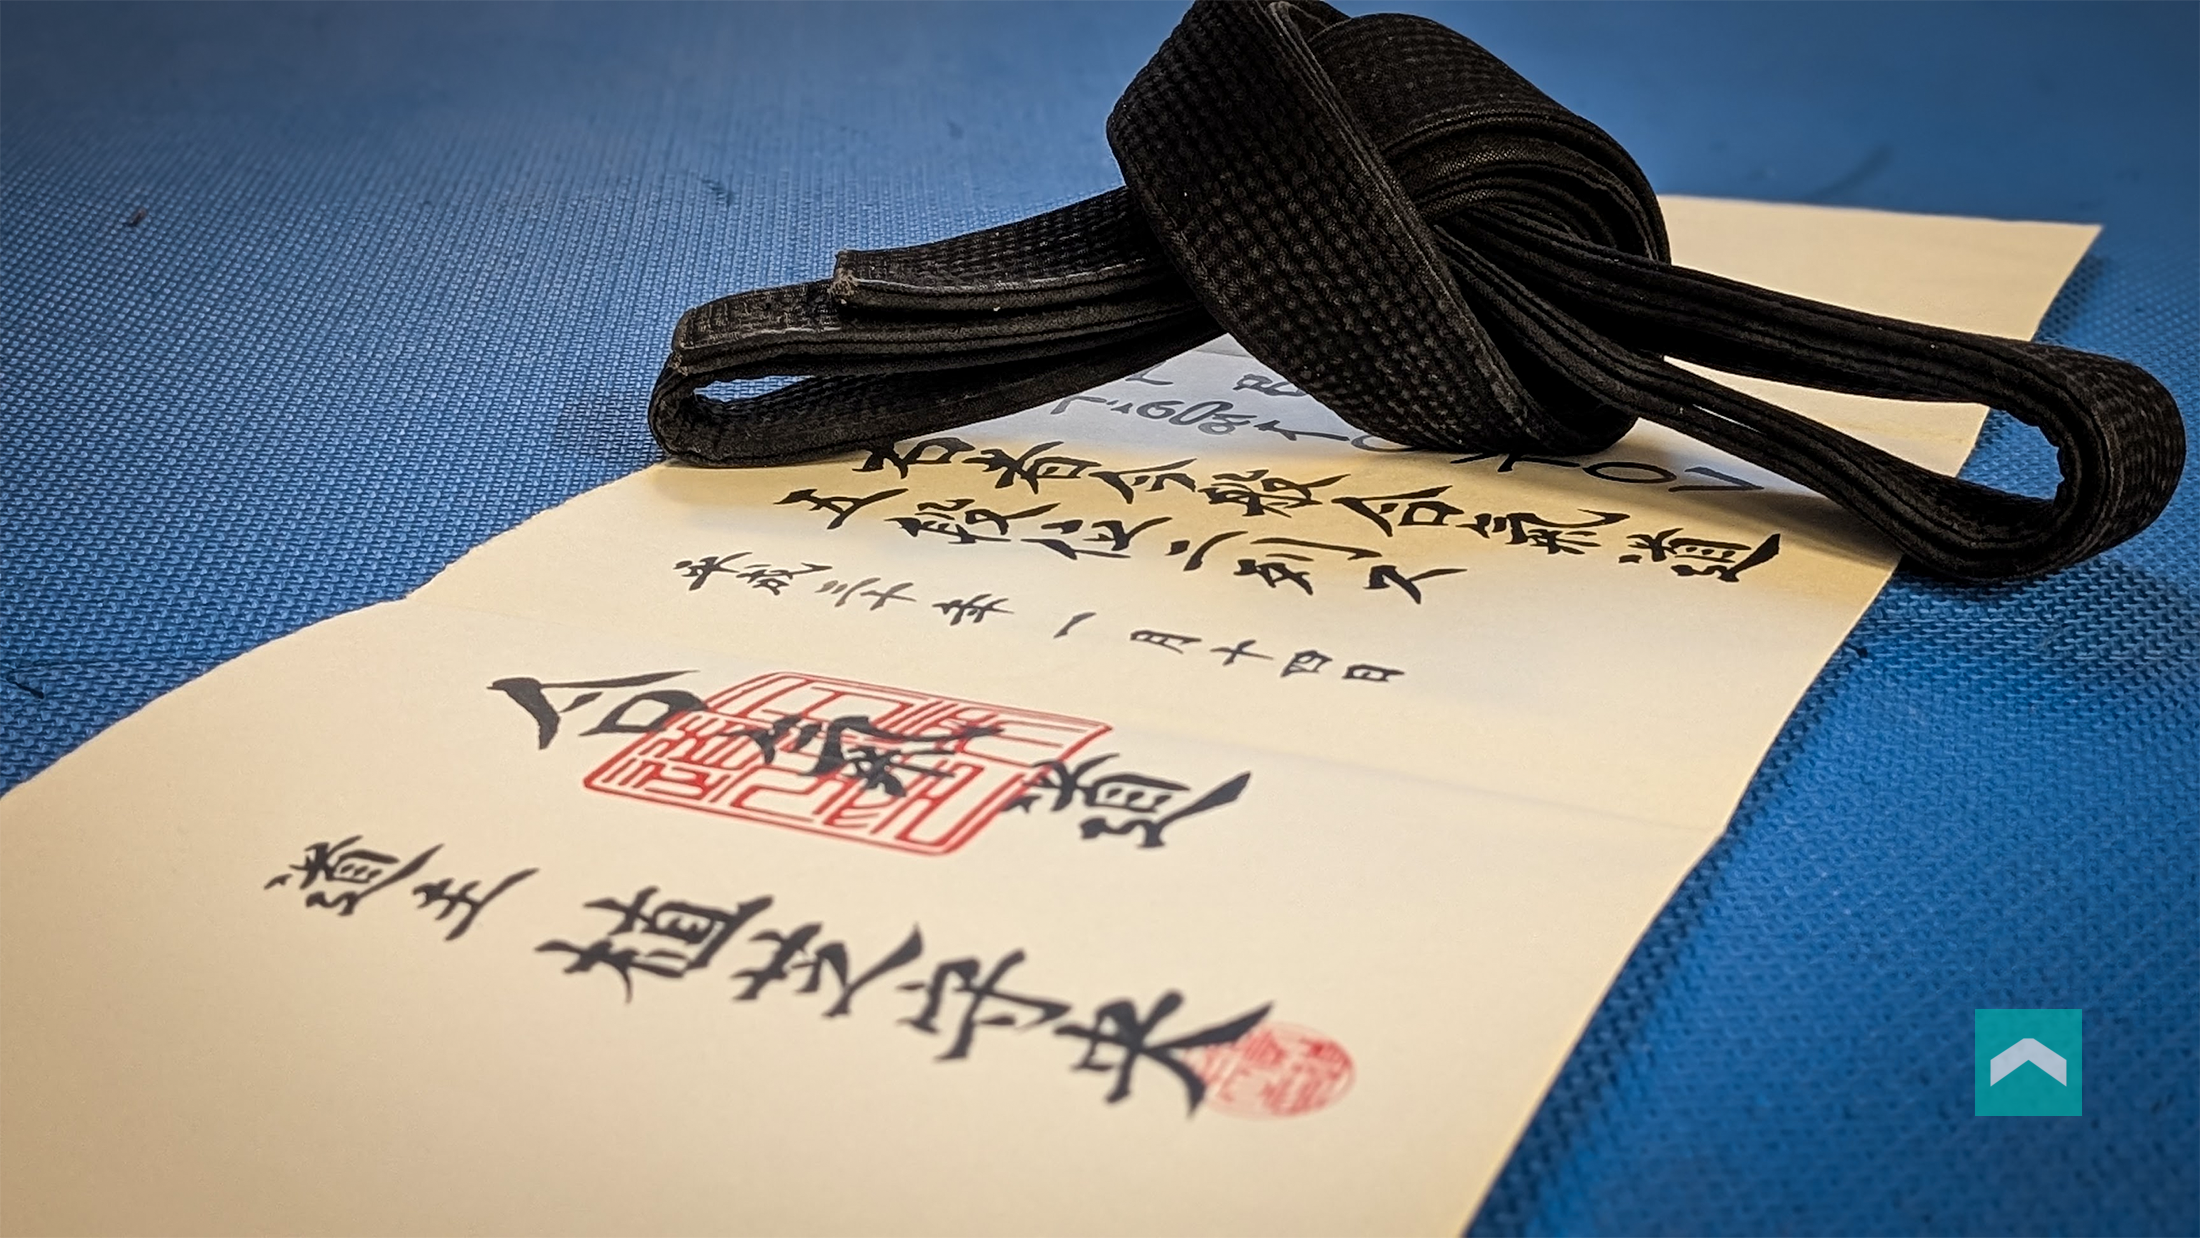 右者今般合氣道
五段位ニ列ス
平成三十年一月十四日
合氣道
道主 植芝守央